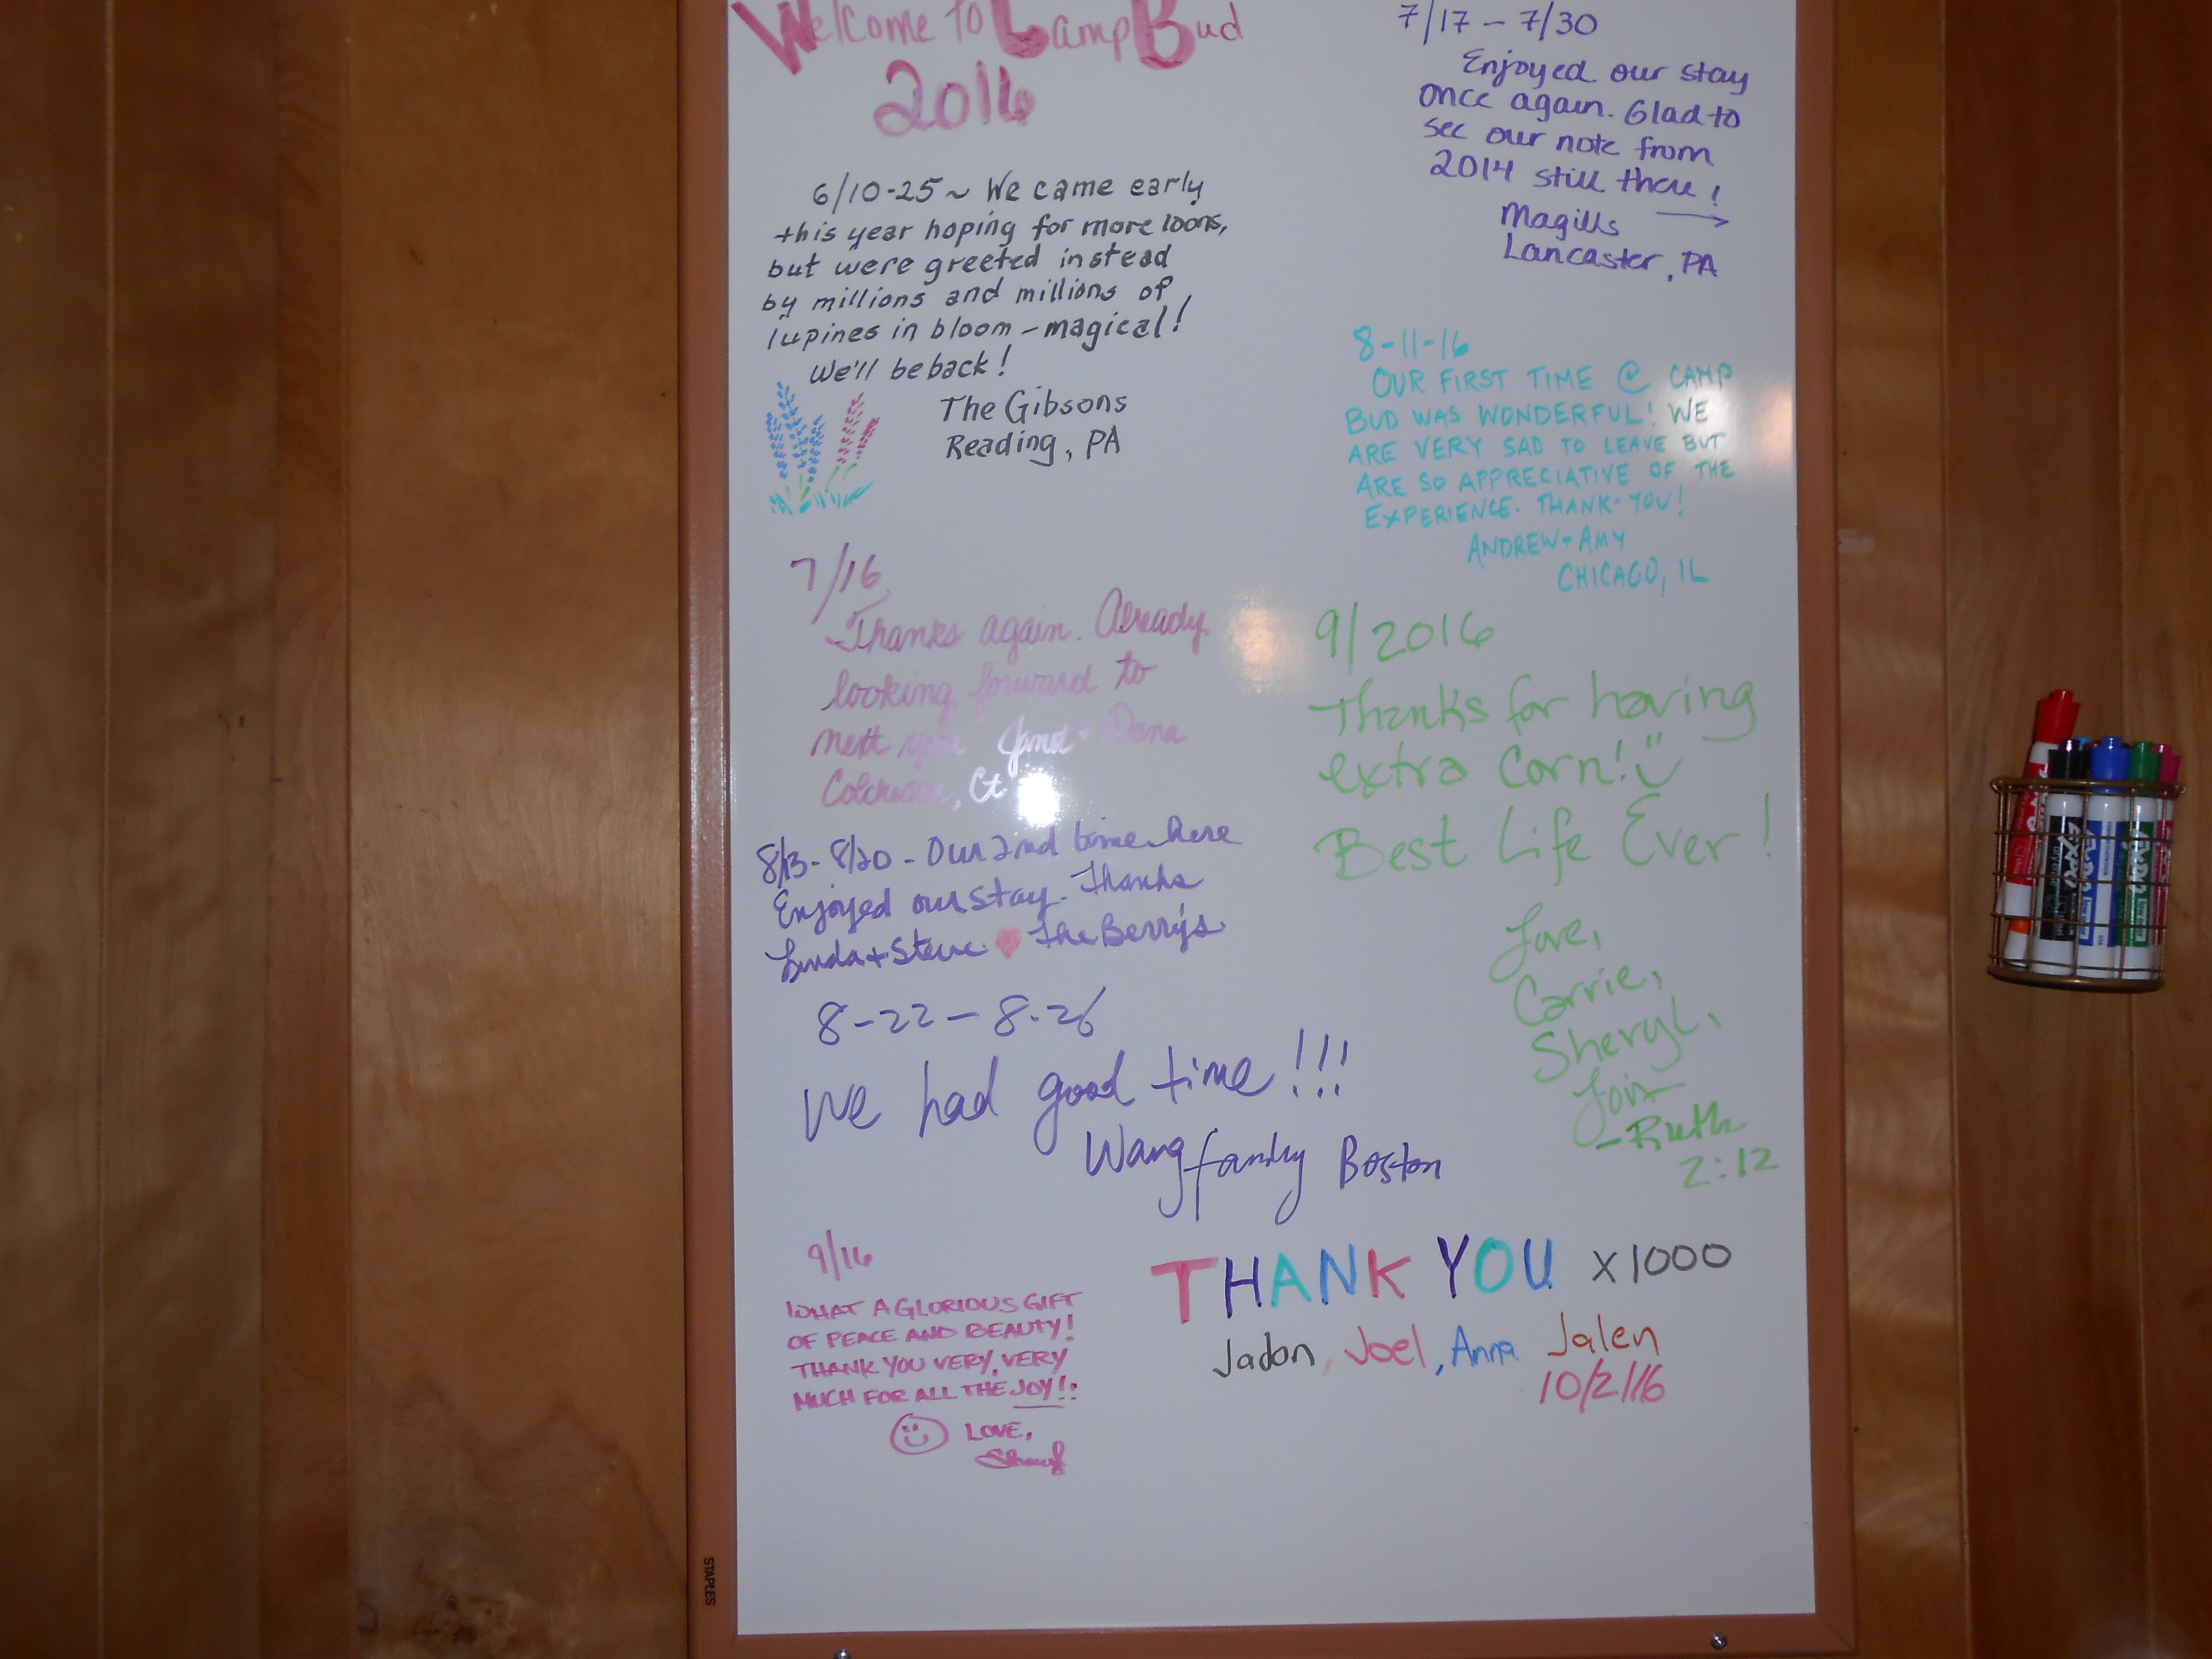 Welcome to Camp Bud
2016
6/10-25 ~ We came early
this year hoping for more loons,
but were greeted instead
by millions and millions of
lupines in bloom - magical!
We'll be back!
The Gibsons
Reading, PA
7/16
Thanks again. Already
looking forward to
next year. Janet + Dana
Colchester, Ct
8/13 - 8/20 - Our 2nd time here
Enjoyed our stay. Thanks
Linda + Steve The Berry's
8-22 - 8-26
We had good time!!!
Wang family Boston
9/16
WHAT A GLORIOUS GIFT
OF PEACE AND BEAUTY!
THANK YOU VERY, VERY
MUCH FOR ALL THE JOY!!
LOVE,
7/17 - 7/30
Enjoyed our stay
once again. Glad to
see our note from
2014 still there!
Magills
Lancaster, PA
8-11-16
OUR FIRST TIME @ CAMP
BUD WAS WONDERFUL! WE
ARE VERY SAD TO LEAVE BUT
ARE SO APPRECIATIVE OF THE
EXPERIENCE. THANK-YOU!
ANDREW + AMY
CHICAGO, IL
9/2016
Thanks for having
extra corn!
Best Life Ever!
Love,
Carrie,
Sheryl,
Lois
- Ruth
2:12
THANK YOU x1000
Jadon, Joel, Anna Jalen
10/2/16
STAPLES
EXPO
EXPO
EXPO